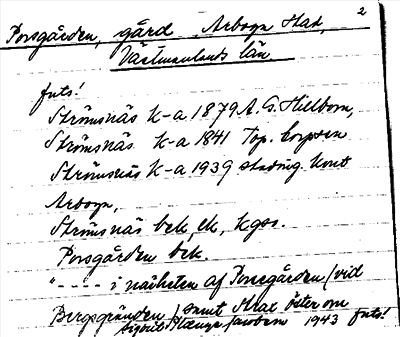 2
Porsgården, gård Arboga Stad,
Västmanlands län.
forts!
Strömsnäs k-a 1879 A. G. Hillbom,
Strömsnäs k-a 1841 Top. korpsen
Strömsnäs k-a 1939 stading. kont
Arboga,
Strömsnäs bek, ek, kgss.
Porsgården bek.
"- - - - i närheten af Porsegården (vid
Bergsgränden) samt strax öster om
1943 forts!